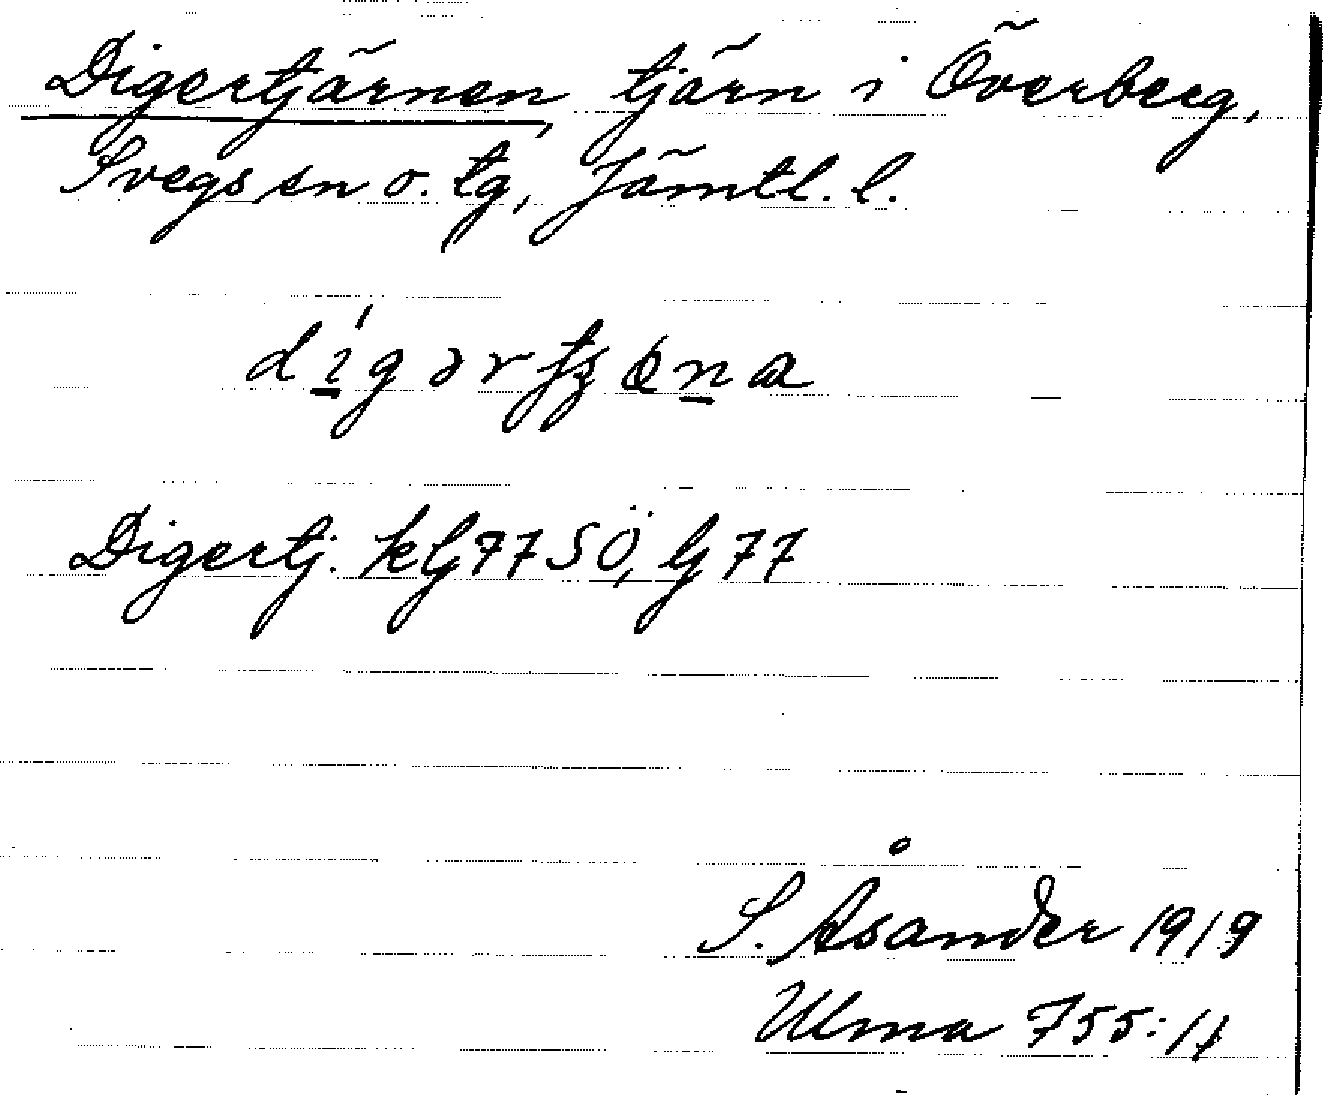 Digertjärnen, tjärn i Överberg,
Svegs sn o. tg, Jämtl. l.
Digertj. kG77SÖ, G77
S. Åsander 1919
Ulma 755: